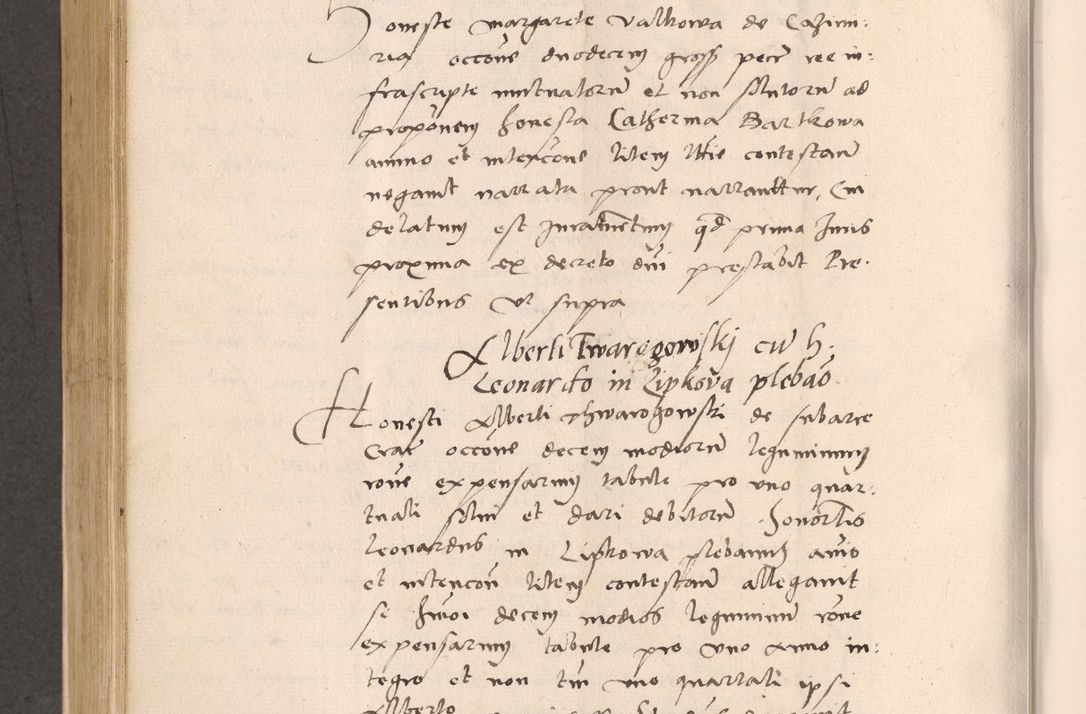 Honeste Margarete Valkowa de Cazimi:
ria occone duodecem gross pecu: ree in:
frascripte mutuatorum et non solutorum ad
proponem honesta Catherina Bartkowa
animo et intencone litem lttie contestan
negavit narrata prout narrantur, Cui
delatum est Juramentum qd prima Juris
proxima ex decreto dni prestabit Pre:
sentibus Ut supra
Alberti Twarogowskj cum h.
Leonardo in Lipkova plebano
Honesti Alberti Thwarogowski de subarce
Crac occone decem modiorum leguminum
rone expensarum tabule pro uno quar:
tuali solui et dari debitorum. honorlis
Leonardus in Lipkowa plebanus animo
et intencon litem contestan allegavit
se huoi decem modios leguminum rone
expensarum tabule pro uno Anno in:
tegro et non tm uno quartali ipsi
Alberto